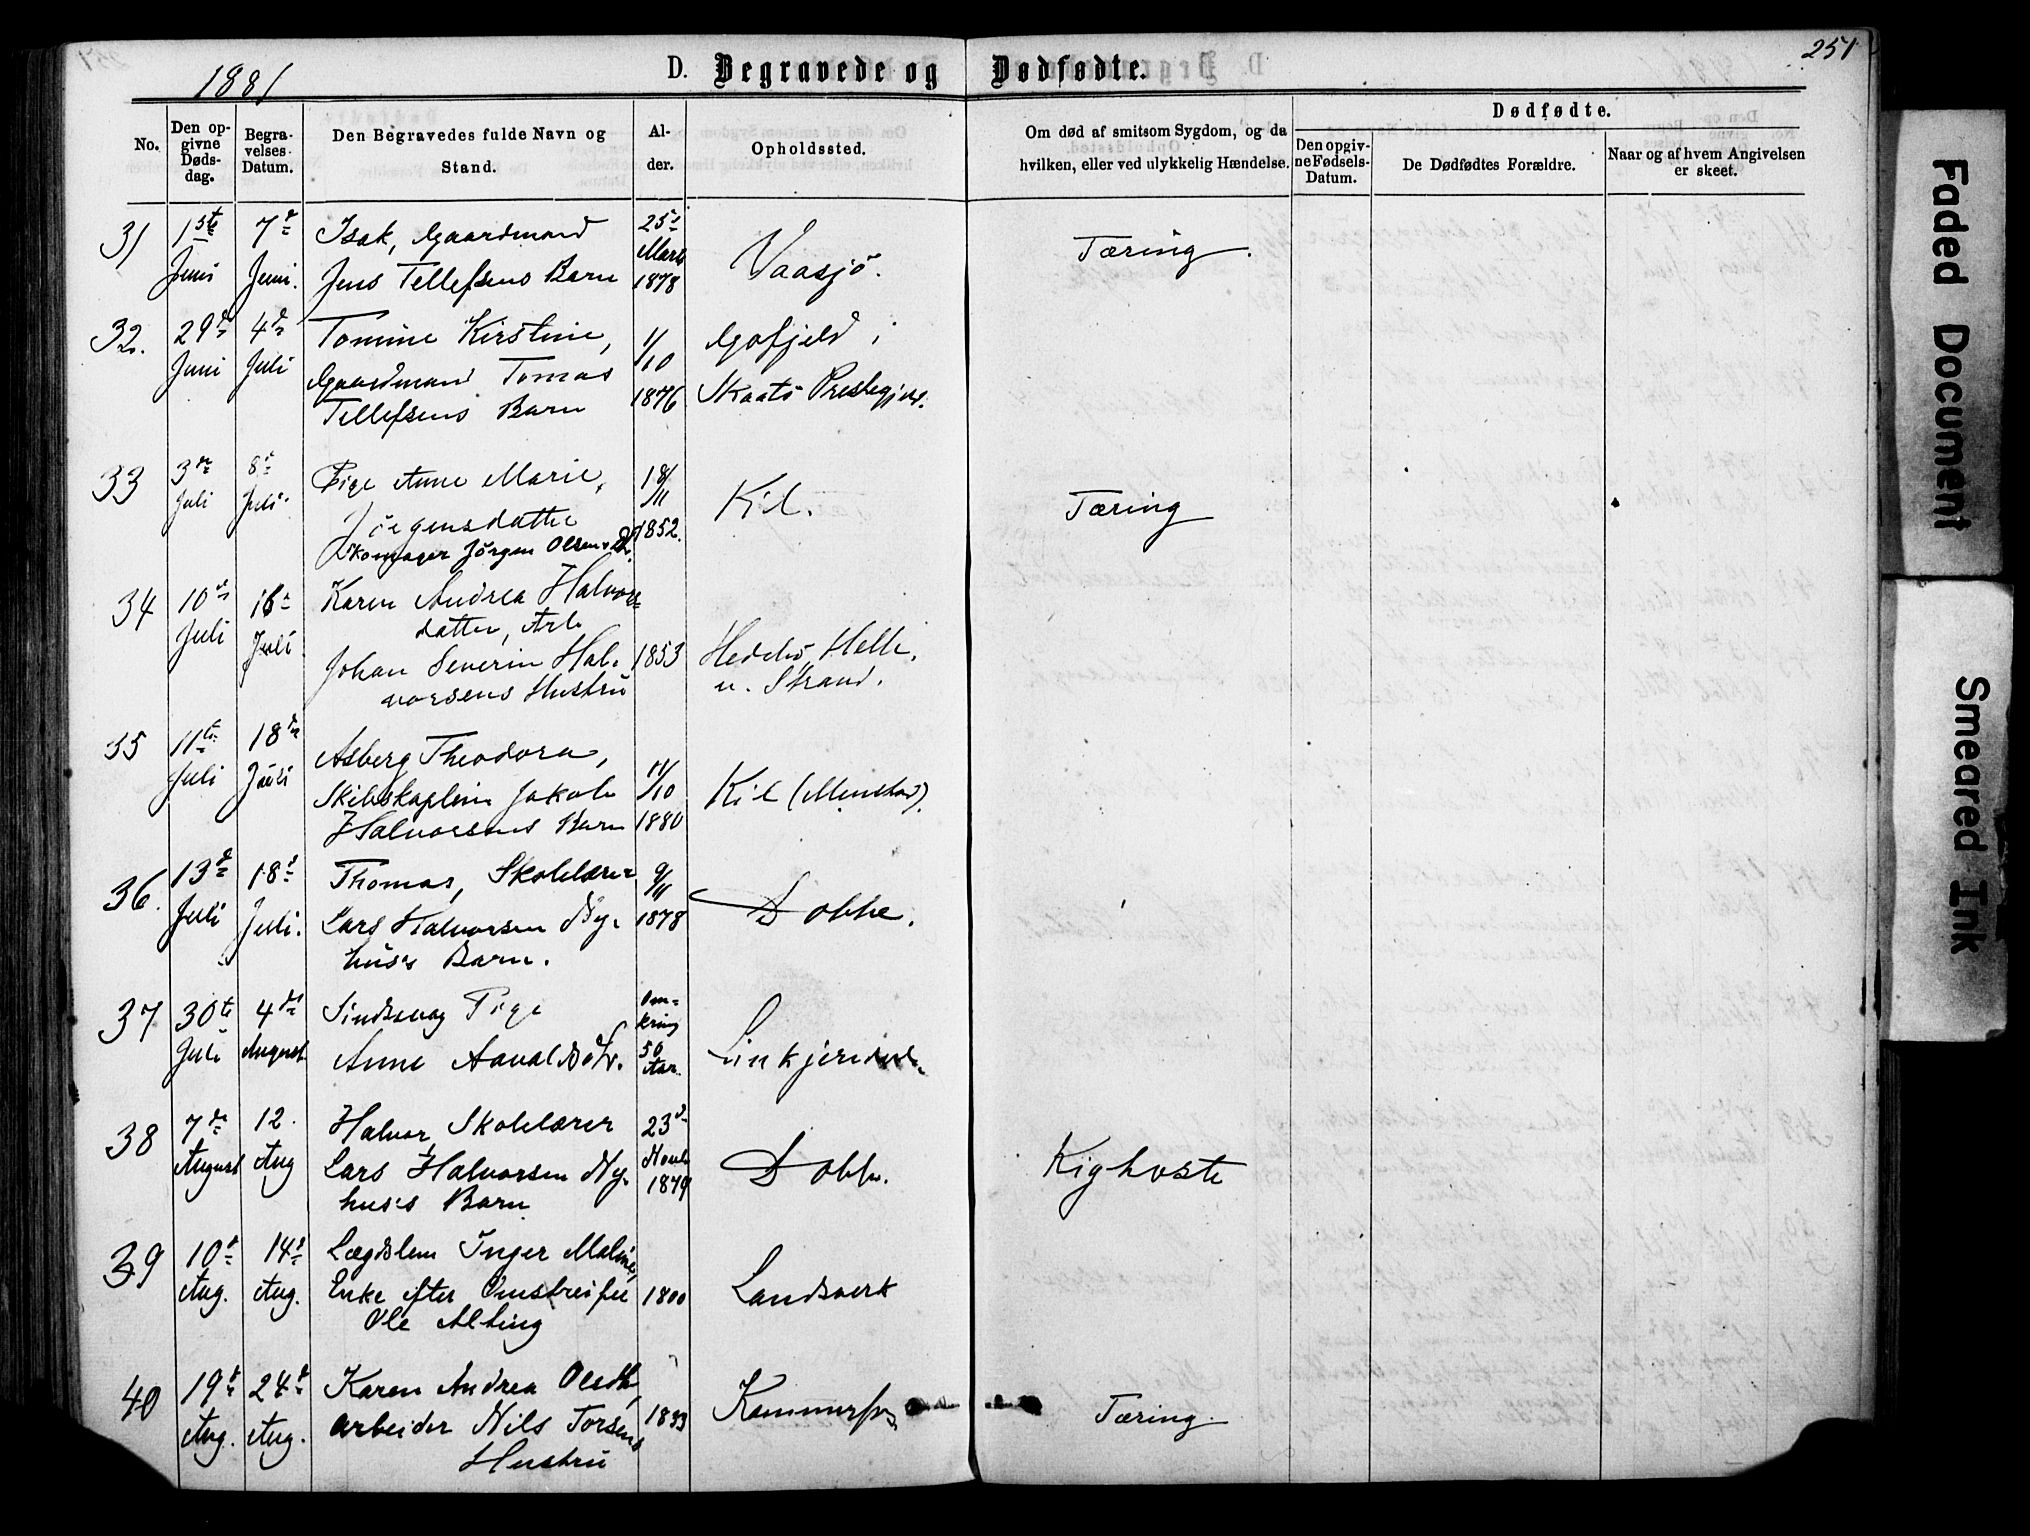 1881
D. Begravede og Dødfødte.
251
No.
Den opgivne Dødsdag.
Begravelses-Datum.
Den Begravedes fulde Navn og Stand.
Alder.
Opholdssted.
Om død af smitsom Sygdom, og da hvilken, eller ved ulykkelig Hændelse.
Dødfødte.
Den opgivne Fødsels-Datum.
De Dødfødtes Forældre.
Naar og af hvem Angivelsen er skeet.
31 1ste Juni 7de Juni. Isak, Gaardmand
Jens Tellefsens Barn
25de Marts 1878
Vaasjö.
Tæring.
32. 29de Juni 4de Juli Tomine Kirstine,
Gaardmand Tomas
Tellefsens Barn
11/10 1876
Gofjeld i
Skaatö Prestegjeld.
33 3die Juli 8de Juli. Pige Anne Marie,
Jörgensdatter
Skomager Jörgen Olsens Dt.
18/11 1852.
Kil.
Tæring
34 10de Juli 16de Juli Karen Andrea Halvors-
datter, Arb
Johan Severin Hal-
vorsens Hustru
1853
Helle,
u. Strand.
35 11te Juli 18de Juli Asberg Theodora,
Skibskaptein Jakob
Halvorsens Barn
11/10 1880
Kil (Menstad).
36. 13de Juli 18de Juli. Thomas, Skolelærer
Lars Halvorsen Ny-
hus's Barn.
9/11 1878
Dobbe.
37 30te Juli 4de August Sindssvag Pige
Anne Aavaldsdtr.
Omkring 50 Aar.
38 7de August 12. Aug Halvor, Skolelærer
Lars Halvorsen Ny-
hus's Barn
23de Novb 1879
Dobbe.
Kighoste
39 10de Aug. 14de Aug. Lægdslem Inger Malene,
Enke efter Omstreifer
Ole Alting
1800
Landsverk
40 19de Aug. 24de Aug. Karen Andrea Olsdtr,
arbeider Nils Torsens
Hustru
1833
Kammerfos
Tæring.
Faded Document
Smeared Ink